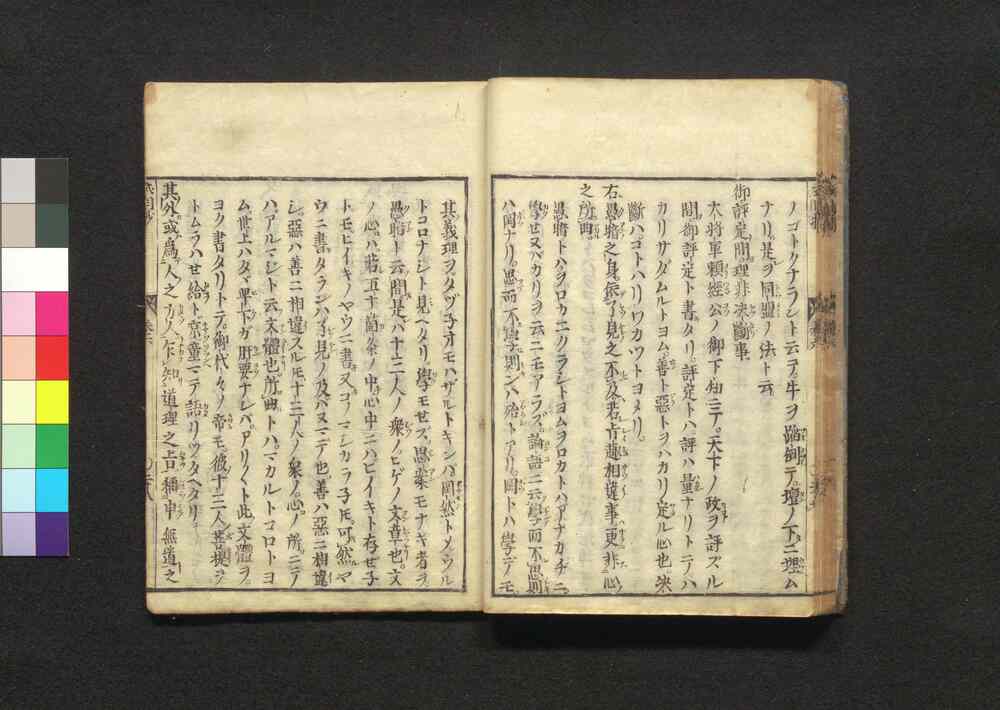 ノゴトクナラント云テ牛ヲ歃御テ壇ノ下ニ埋ム
ナリ是ヲ同盟ノ法ト云
御評定間理非決斷事
大將軍頼經公ノ御下知ニテ天下ノ政ヲ評スル
間御評定ト書タリ評定トハ評ハ量ナリトテハ
カリサダムルトヨム善ト惡トヲハカリ定ル心也決
斷ハコトハリワカツトヨメリ
右愚暗之身依了見之不及若旨趣相違事更非心
之所曲
愚暗トハヲロカニクラシトヨムヲロカトハアナカチニ
學セヌバカリヲ云ニモアラズ論語ニ云學而不思則
ハ罔ナリ思而不學則ンハ殆トアリ罔トハ學テノモ
其義理ヲタヅ子オモハザルトキンバ罔然トメウル
トコロナシト見ヘタリ學モセズ思案モナキ者ヲ
愚暗ト云間是ハ十三人ノ衆ノヒゲノ文章也文
ノ心ハ若五十箇条ノ中心中ニハヒイキト存セ子
トモヒイキノヤウニ書又コノマシカラ子モ可然ヤ
ウニ書タランハ了見ノ及バヌニテ也善ハ惡ニ相違
シ惡ハ善ニ相違スルモ十三人ノ衆ノ心ノ所ニテ
ハアルマシト云文體也所曲トハマカルトコロトヨ
ム世上ハタヾ畢下ガ肝要ナレバアリ〱ト此文體ヲ
ヨク書タリトテ御代々ノ帝モ彼十三人菩提ヲ
トムラハせ給ト京童ニテ語リツタヘタリ
其外或爲人之方人乍知道理之旨稱申無道之